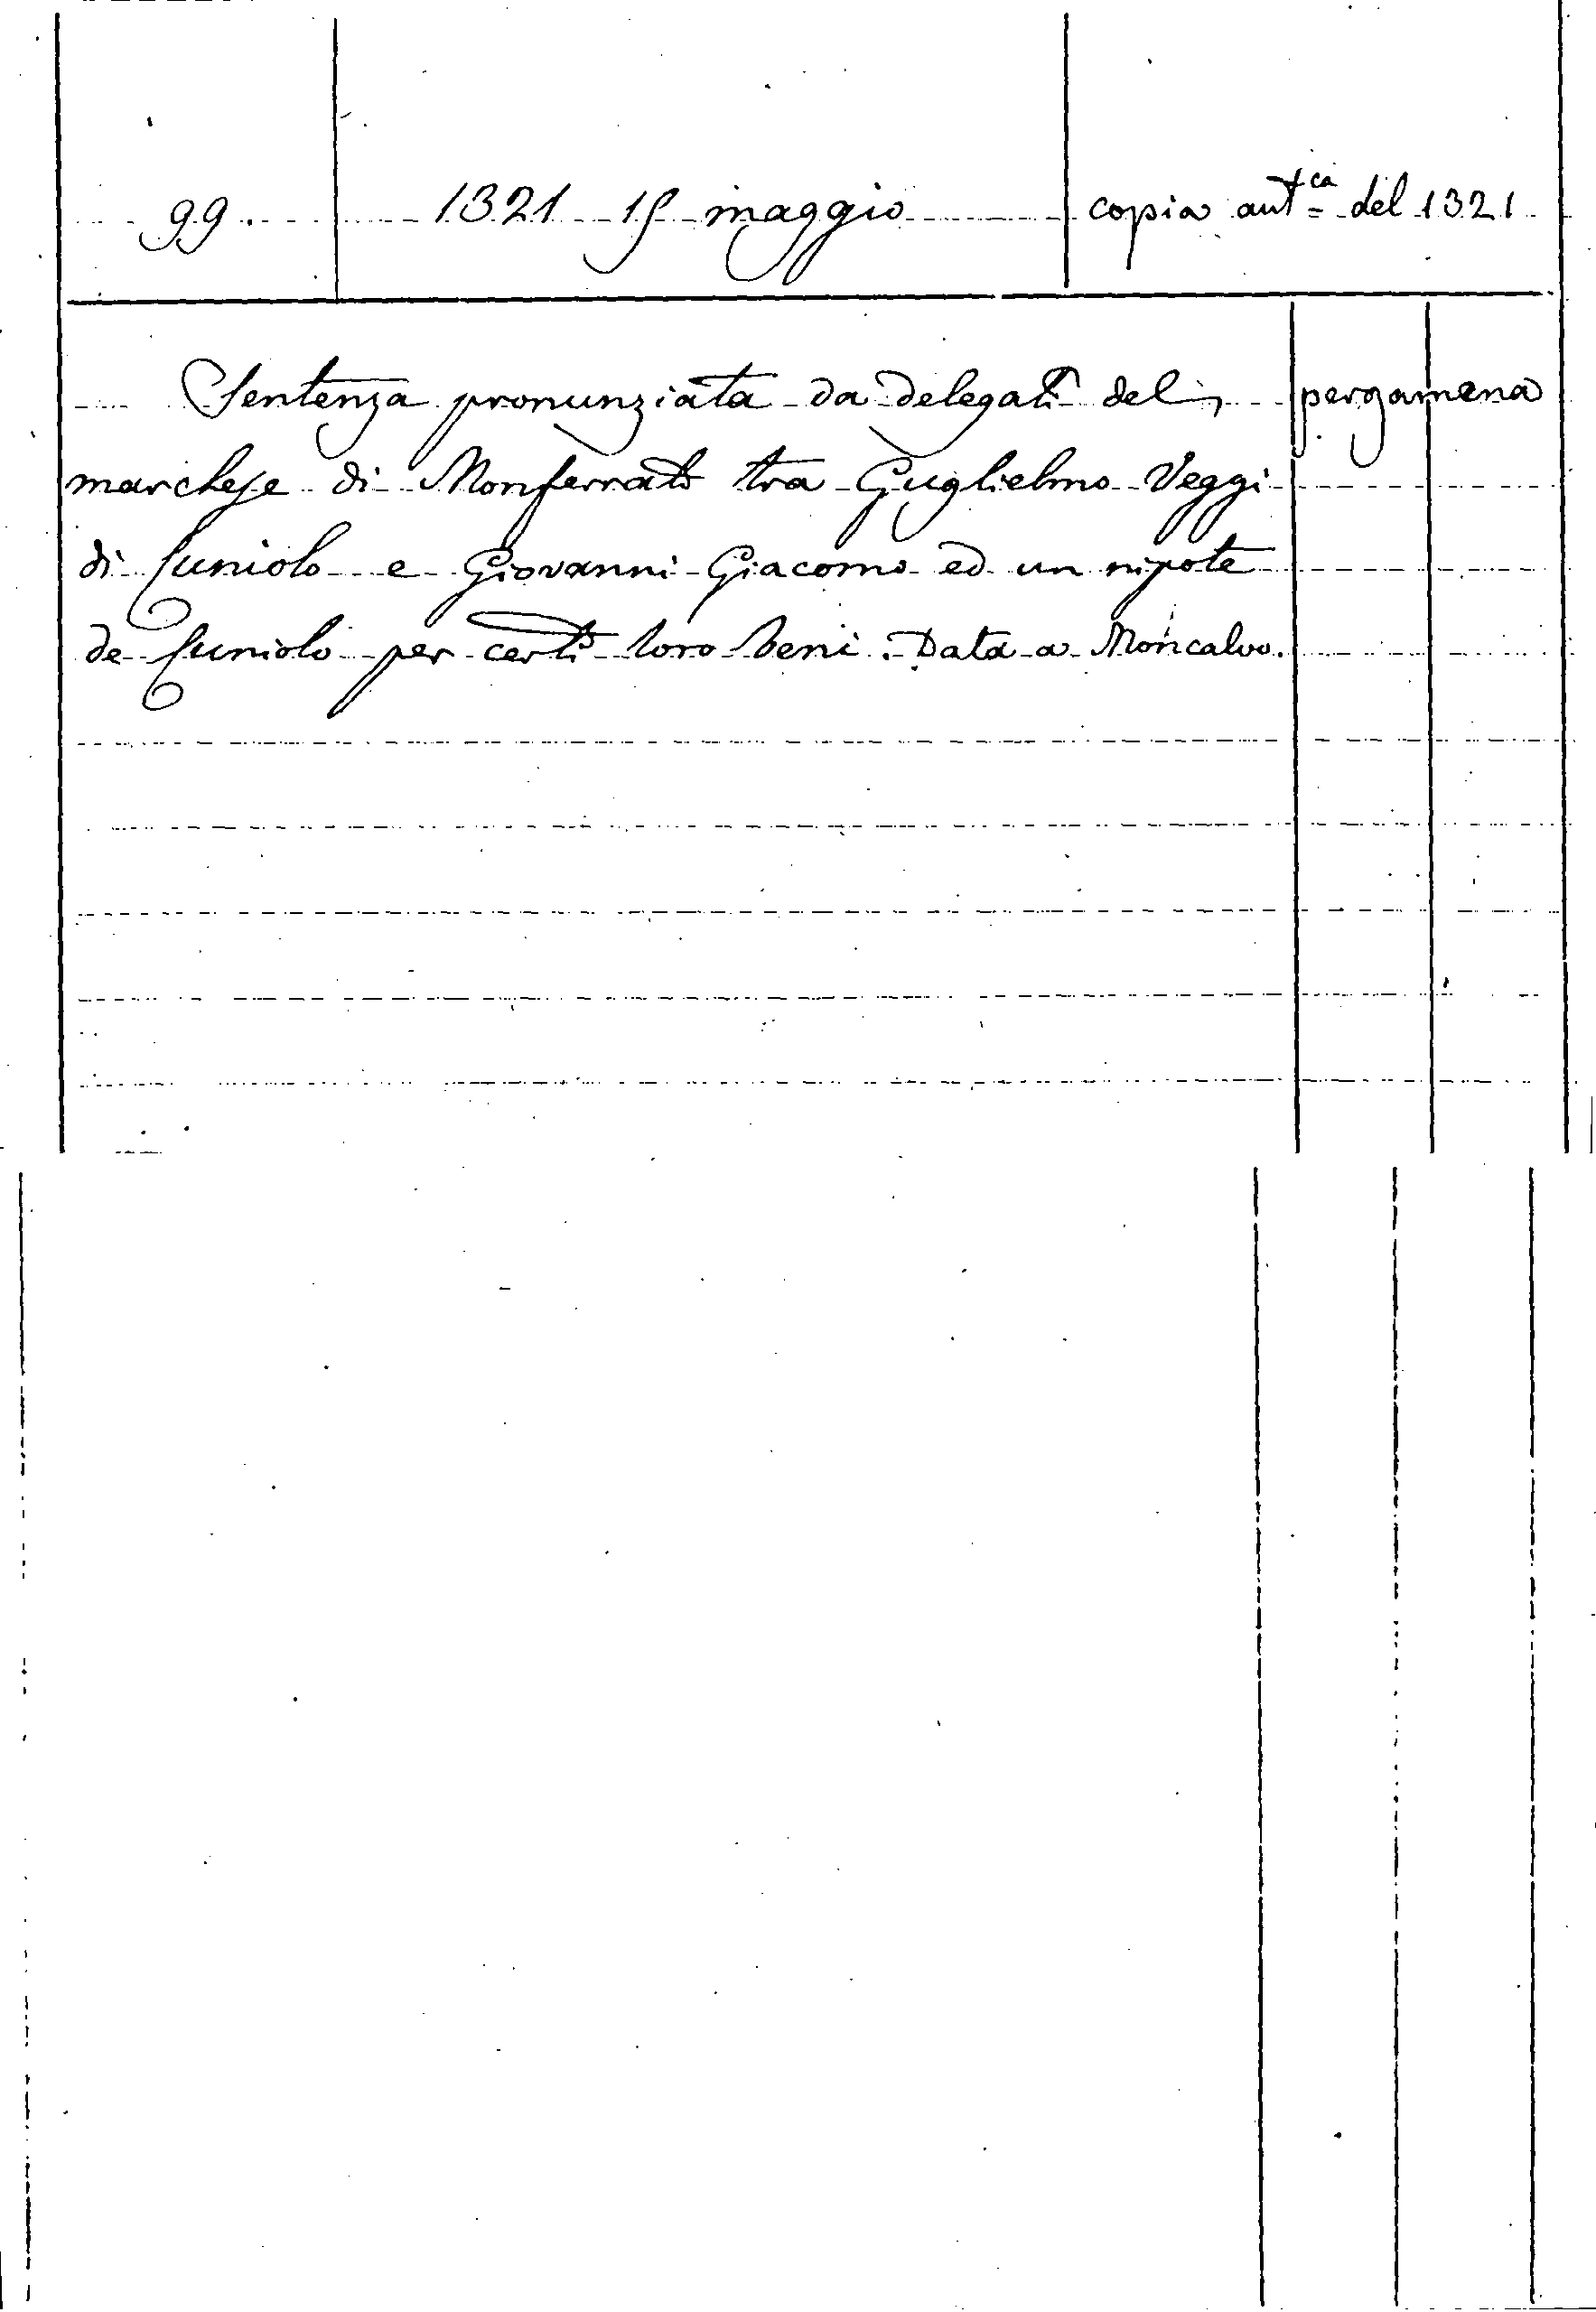 99. 1321 15 maggio copia autca del 1321
Sentenza pronunziata da delegati del pergamena
marchese di Monferrato tra Guglielmo Veggi
di Cuniolo e Giovanni Giacomo ed un nipote
de Cuniolo per certi loro beni. Data a Moncalvo.